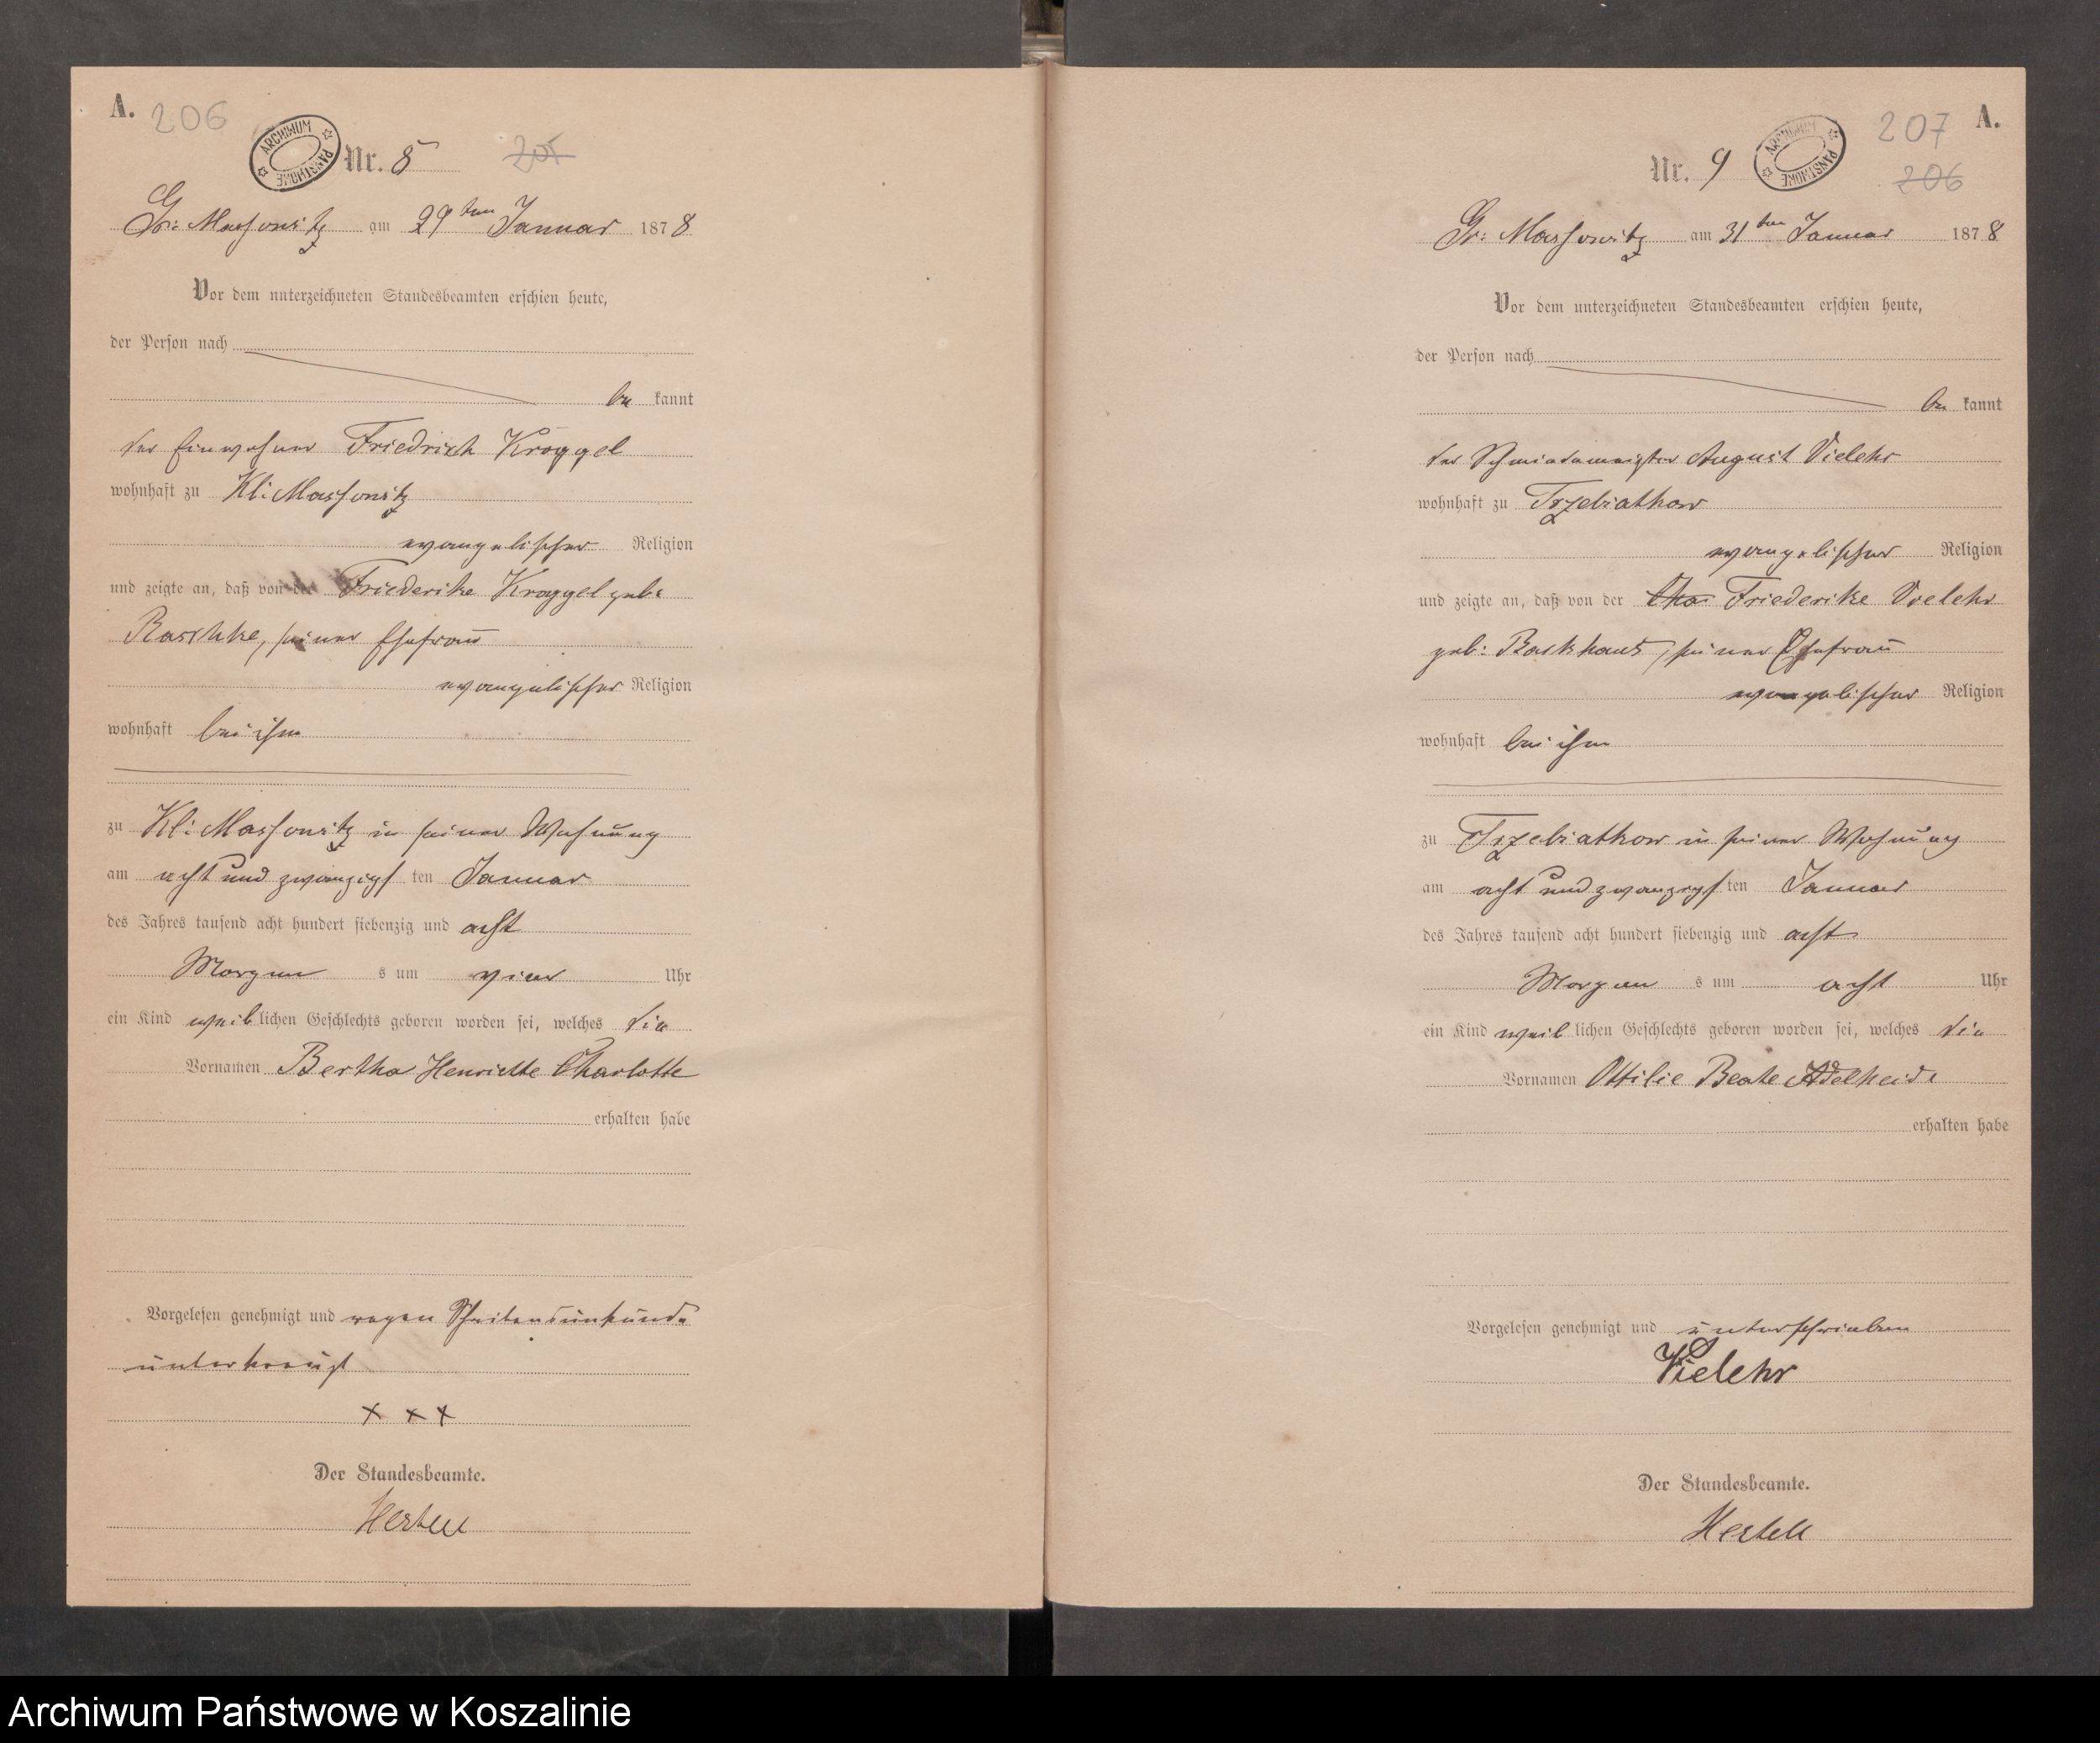 A. 206
ARCHIWUM PAŃSTWOWE
Nr. 8 205
Gr: Massowitz am 29ten Januar 1878
Vor dem unterzeichneten Standesbeamten erschien heute,
der Person nach
be kannt
der Einwohner Friedrich Kroggel
wohnhaft zu Kl: Massowitz
evangelischer Religion
und zeigte an, daß von der Friederike Kroggel geb:
Raschke, seiner Ehefrau
evangelischer Religion
wohnhaft bei ihm
zu Kl: Massowitz in seiner Wohnung
am acht und zwanzigs ten Januar
des Jahres tausend acht hundert siebenzig und acht
Morgen s um vier Uhr
ein Kind weib lichen Geschlechts geboren worden sei, welches die
Vornamen Bertha Henriette Charlotte
erhalten habe
Vorgelesen genehmigt und wegen Schreibensunkunde
unterkreuzt
+ + +
Der Standesbeamte.
Hertell
207 A.
ARCHIWUM PAŃSTWOWE
Nr. 9
206
Gr: Massowitz am 31ten Januar 1878
Vor dem unterzeichneten Standesbeamten erschien heute,
der Person nach
be kannt
der Schmiedemeister August Vielehr
wohnhaft zu Trzebiatkow
evangelischer Religion
und zeigte an, daß von der Friederike Vielehr
geb: Backhaus, seiner Ehefrau
evangelischer Religion
wohnhaft bei ihm
zu Trzebiatkow in seiner Wohnung
am acht und zwanzigs ten Januar
des Jahres tausend acht hundert siebenzig und acht
Morgen s um acht Uhr
ein Kind weib lichen Geschlechts geboren worden sei, welches die
Vornamen Ottilie Beate Adelheide
erhalten habe
Vorgelesen genehmigt und unterschrieben
Vielehr
Der Standesbeamte.
Hertell
Archiwum Państwowe w Koszalinie